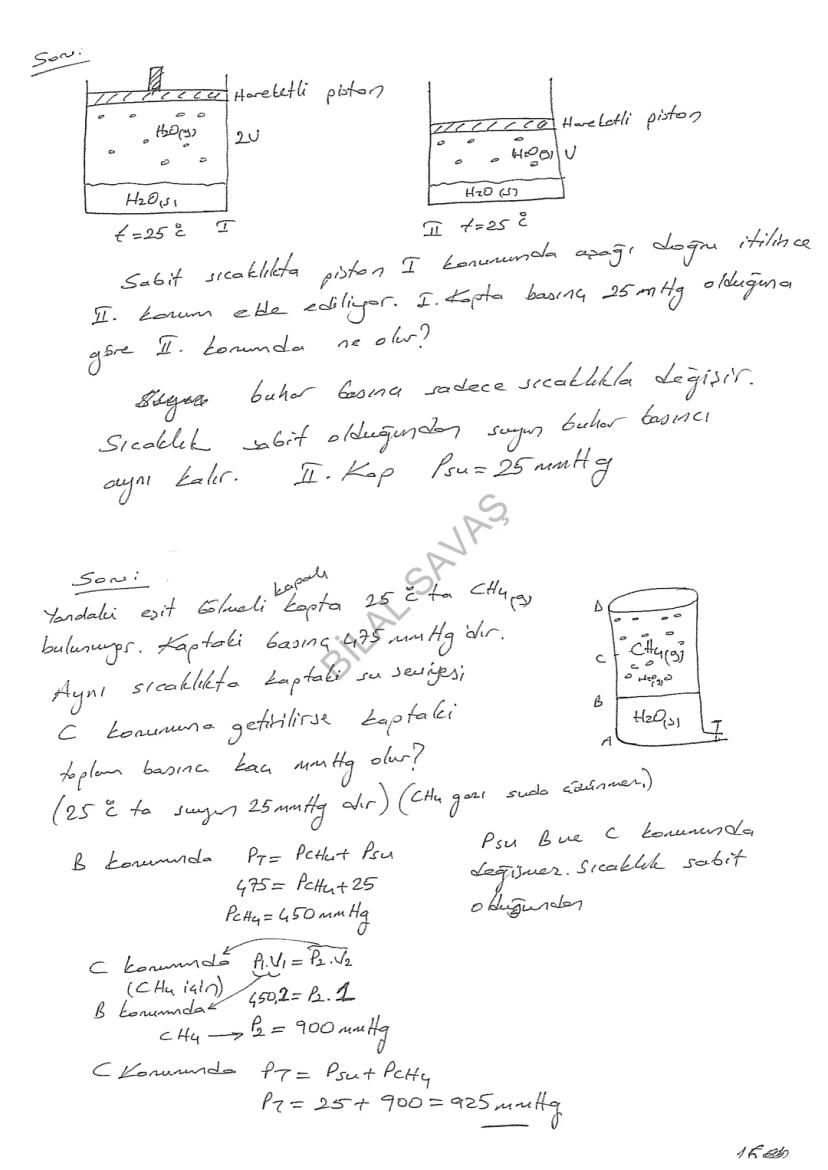 Soru:
Hareketli piston
H2O(g)
2V
H2O(s)
t=25 °C I
Hareketli piston
H2O(g) V
H2O(s)
II t=25 °C
Sabit sıcaklıkta piston I konumunda aşağı doğru itilince
II. konum elde ediliyor. I. Kapta basınç 25 mHg olduğuna
göre II. konumda ne olur?
buhar basıncı sadece sıcaklıkla değişir.
Sıcaklık sabit olduğundan suyun buhar basıncı
aynı kalır. II. Kap Psu = 25 mmHg
BİLAL SAVAŞ
Soru:
Yandaki eşit bölmeli kapalı kapta 25 °C ta CH4(g)
bulunuyor. Kaptaki basınç 475 mmHg dır.
Aynı sıcaklıkta kaptaki su seviyesi
C konumuna getirilirse kaptaki
toplam basınç kaç mmHg olur?
(25 °C ta suyun 25 mmHg dır) (CH4 gazı suda çözünmez)
D
C
CH4(g)
H2O(g)
B
H2O(s)
A
B konumunda PT = PCH4 + Psu
475 = PCH4 + 25
PCH4 = 450 mmHg
Psu B ve C konumunda
değişmez. Sıcaklık sabit
olduğundan
C konumunda P1.V1 = P2.V2
(CH4 için)
B konumunda 450.2 = P2.1
CH4 → P2 = 900 mmHg
C Konumunda PT = Psu + PCH4
PT = 25 + 900 = 925 mmHg